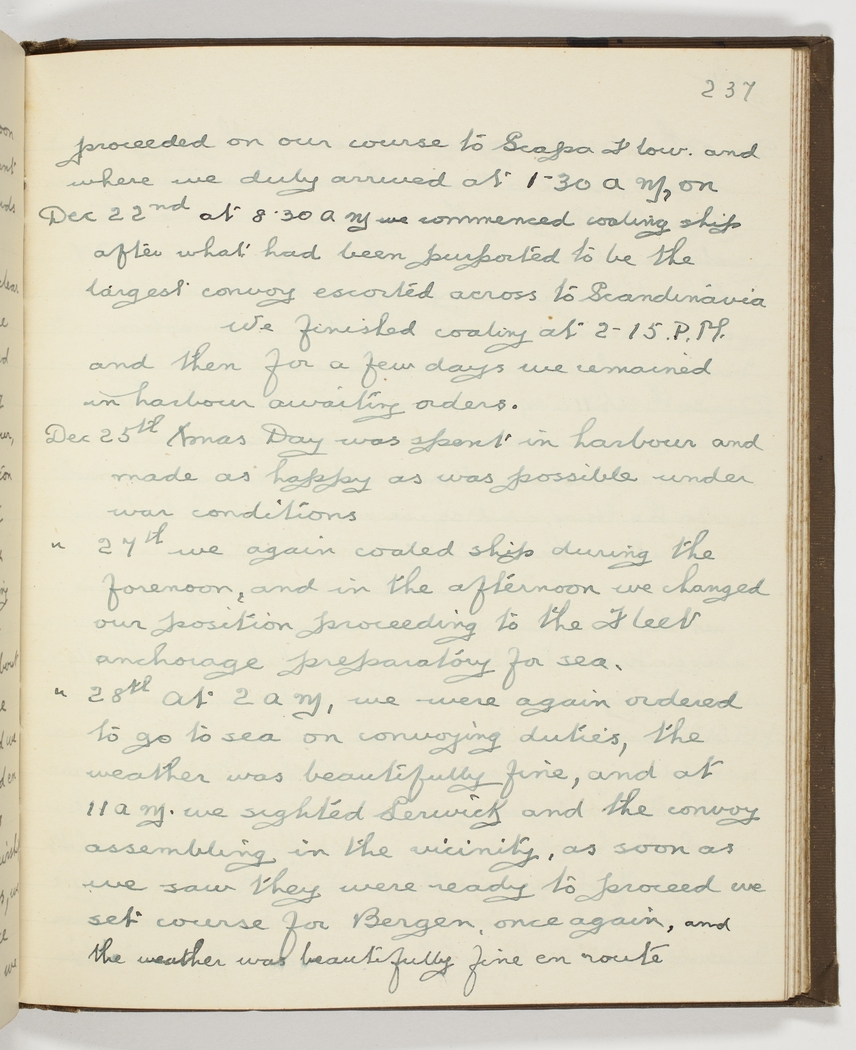 237
proceeded on our course to Scapa Flow. and
where we duly arrived at 1-30 a m, on
Dec 22nd at 8.30 A M we commenced coaling ship
after what had been purported to be the
largest convoy escorted across to Scandinavia
We finished coaling at 2-15.P.M.
and then for a few days we remained
in harbour awaiting orders.
Dec 25th Xmas Day was spent in harbour and
made as happy as was possible under
war conditions
" 27th we again coaled ship during the
forenoon, and in the afternoon we changed
our position proceeding to the Fleet
anchorage preparatory for sea.
" 28th At 2 a m, we were again ordered
to go to sea on convoying duties, the
weather was beautifully fine, and at
11 a m. we sighted Lerwick and the convoy
assembling in the vicinity, as soon as
we saw they were ready to proceed we
set course for Bergen, once again, and
the weather was beautifully fine en route